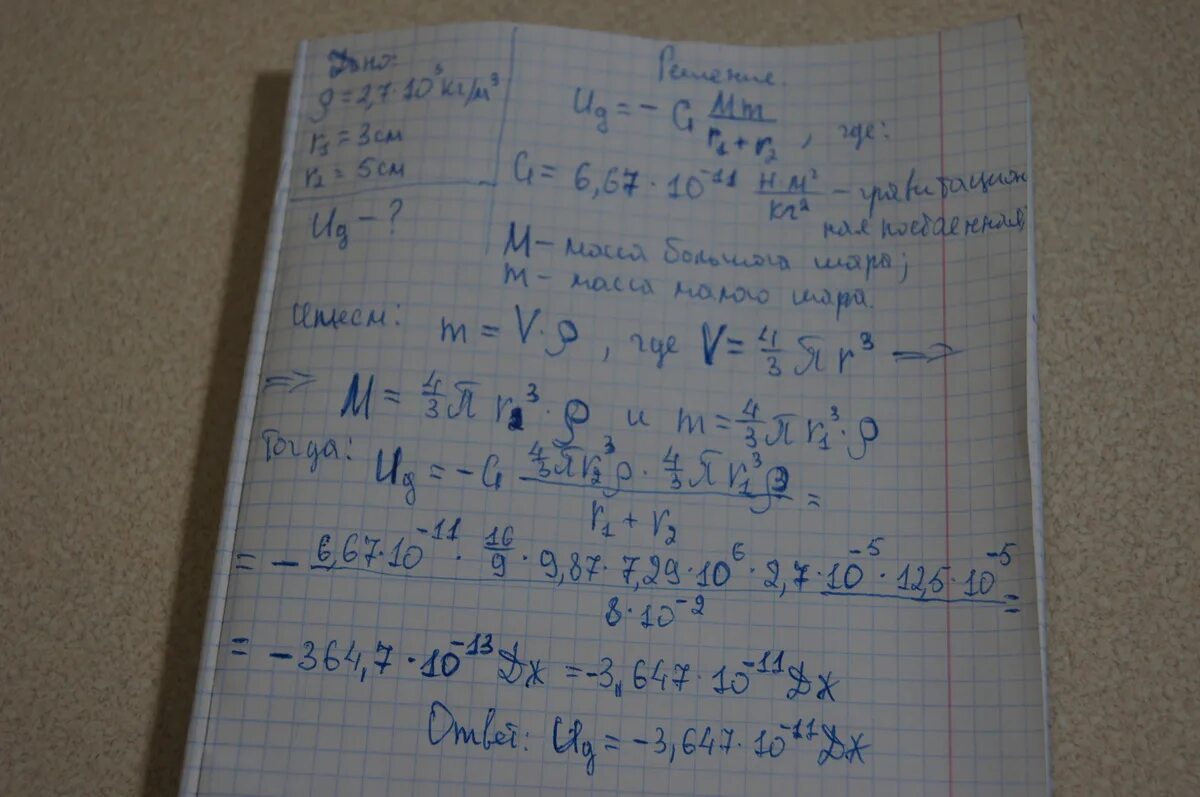 Дано:
ρ = 2,7·10³ кг/м³
r₁ = 3см
r₂ = 5см
U_g - ?
Решение.
U_g = - G Mm / (r₁ + r₂), где:
G = 6,67·10⁻¹¹ Н·м²/кг² - гравитацион
ная
M - масса большого шара;
m - масса малого шара.
m = V·ρ, где V = 4/3 π r³ =>
=> M = 4/3 π r₂³·ρ и m = 4/3 π r₁³·ρ
Тогда: U_g = - G (4/3 π r₂³ρ · 4/3 π r₁³ρ) / (r₁ + r₂) =
= - (6,67·10⁻¹¹ · 16/9 · 9,87 · 7,29·10⁶ · 2,7·10⁻⁵ · 12,5·10⁻⁵) / (8·10⁻²) =
= -364,7·10⁻¹³ Дж = -3,647·10⁻¹¹ Дж
Ответ: U_g = -3,647·10⁻¹¹ Дж